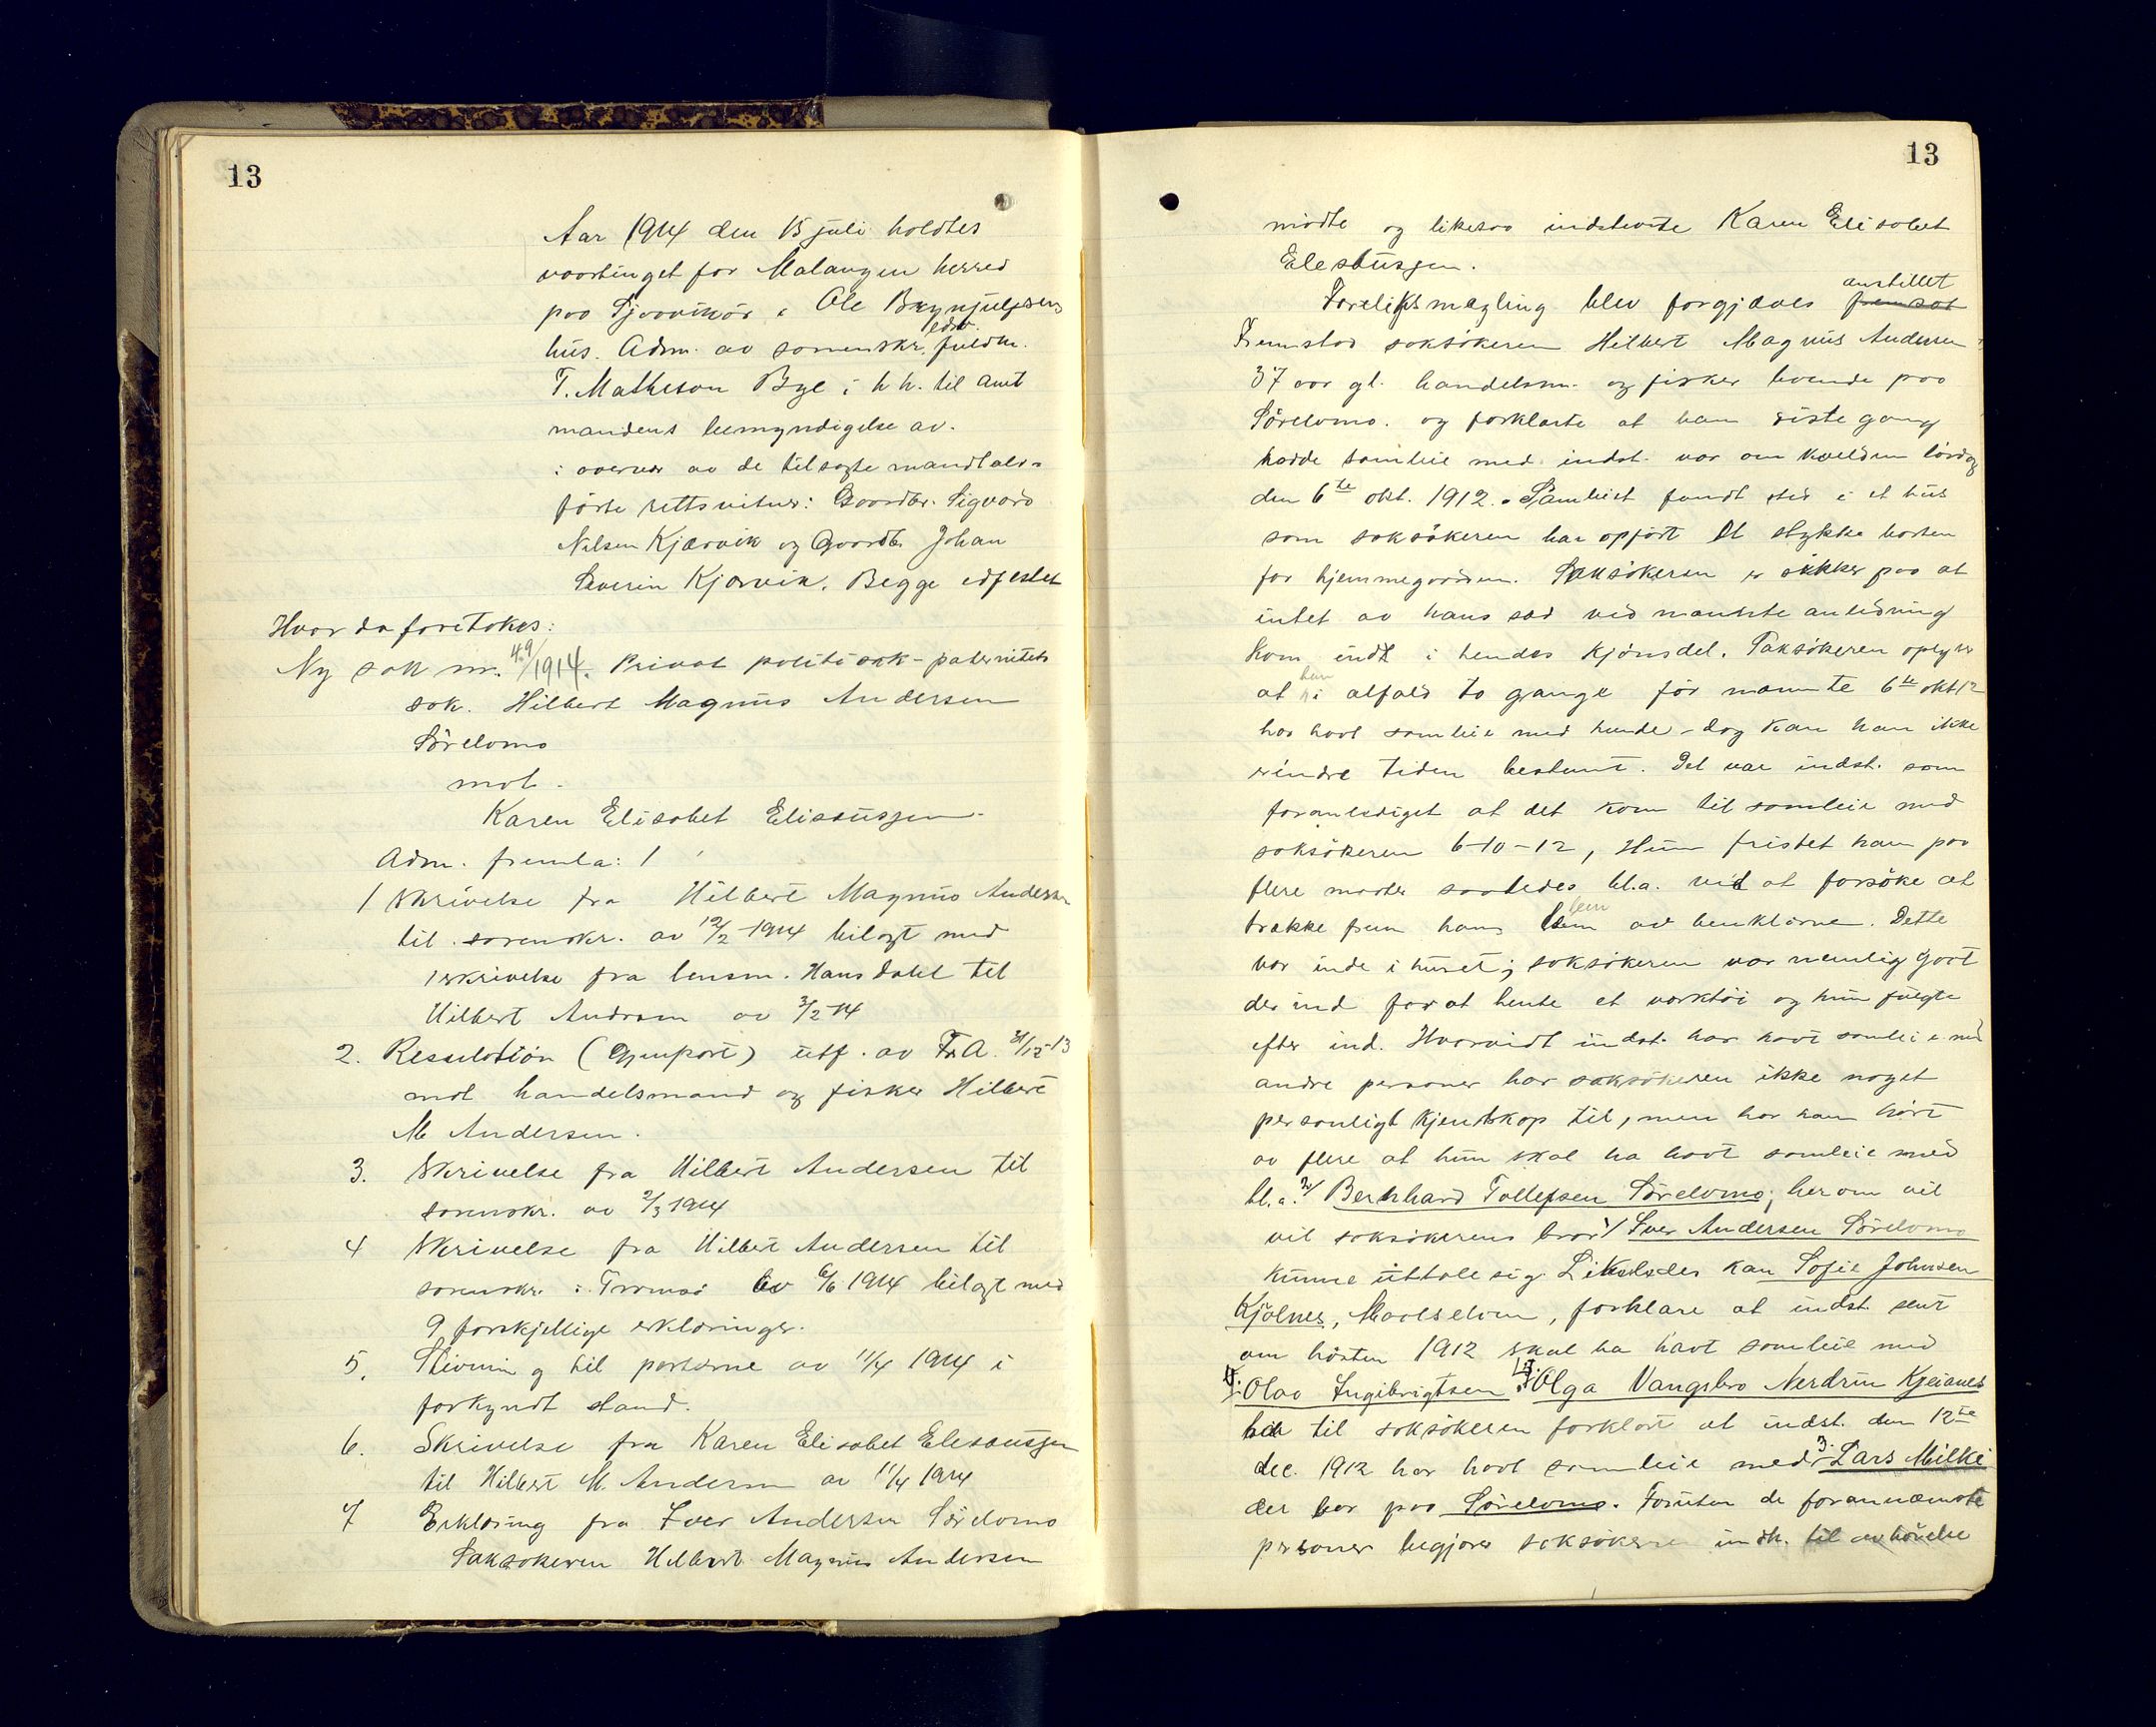 13
Aar 1914 den 15 juli holdtes
vaartinget for Malangen herred
paa Gjøvikør i Ole Brynjulfsens
hus. Adm. av sorenskr. edsv. fuldm.
T. Matheson Bye i h.h. til amt
mandens bemyndigelse av.
i overvær av de tilsagte mandtals-
førte rettsvitner: Gaardbr. Sigvard
Nilsen Kjærvik og Gaardbr. Johan
Severin Kjærvik. Begge edfestet
Hvor da foretokes:
Ny sak nr. 49/1914. Privat politisak - paternitets
sak. Hilbert Magnus Andersen
Sørelvmo
mot.
Karen Elisabet Eliseussen.
Adm. fremla: 1
1 Skrivelse fra Hilbert Magnus Andersen
til sorenskr. av 12/2 1914 bilagt med
skrivelse fra lensm. Hans Dahl til
Hilbert Andersen av 3/2-14
2. Resulotion (Gjenpart) utf. av F.A. 31/12-13
mot handelsmand og fisker Hilbert
M Andersen.
3. Skrivelse fra Hilbert Andersen til
sorenskr. av 2/3 1914
4 Skrivelse fra Hilbert Andersen til
sorenskr. i Tromsø av 6/6 1914 bilagt med
9 forskjellige erklæringer.
5. Stevning til parterne av 11/4 1914 i
forkyndt stand.
6. Skrivelse fra Karen Elisabet Eleseussen
til Hilbert M. Andersen av 11/4 1914
7 Erklæring fra Iver Andersen Sørelvmo
Saksøkeren Hilbert Magnus Andersen
13
møtte og likesaa indstevnte Karen Elisabet
Eleseussen.
Foreliksmægling blev forgjæves fremsat anstillet
Fremstod saksøkeren Hilbert Magnus Andersen
37 aar gl. handelsm. og fisker boende paa
Sørelvmo. og forklarte at han siste gang
hadde samleie med indst. var om kvelden lørdag
den 6te okt. 1912. Samleiet fandt sted i et hus
som saksøkeren har opført et stykke borten
for hjemmegaarden. Saksøkeren er sikker paa at
intet av hans sæd ved nævnte anledning
kom indt i hendes kjønsdel. Saksøkeren oplyser
at han i alfald to gange før nævnte 6te okt 12
har havt samleie med hende - dog kan han ikke
erindre tiden bestemt. Det var indst. som
foranlediget at det kom til samleie med
saksøkeren 6-10-12, Hun fristet ham paa
flere maater saaledes bl.a. ved at forsøke at
trække frem hans lem av benklærne. Dette
var inde i huset; saksøkeren var nemlig gaat
der ind for at hente et verktøi og hun fulgte
efter ind. Hvorvidt indst. har havt samleie med
andre personer har saksøkeren ikke noget
personligt kjendskap til, men har han hørt
av flere at hun skal ha havt samleie med
bl.a. 2/ Bernhard Tollefsen Sørelvmo; herom vil
vil saksøkerens bror 1/ Iver Andersen Sørelvmo
kunne uttale sig. Likeledes kan Sofie Johnsen
Kjølnes, Maalselven, forklare at indst. sent
om høsten 1912 skal ha havt samleie med
Olav Ingibrigtsen. Olga Vangsbro Nerdrum Kjeianes
har til saksøkeren forklart at indst. den 12te
dec. 1912 har havt samleie med 3. Lars Milke
der bor paa Sørelvmo. Foruten de forannævnte
personer begjærer saksøkeren indk. til avhørelse